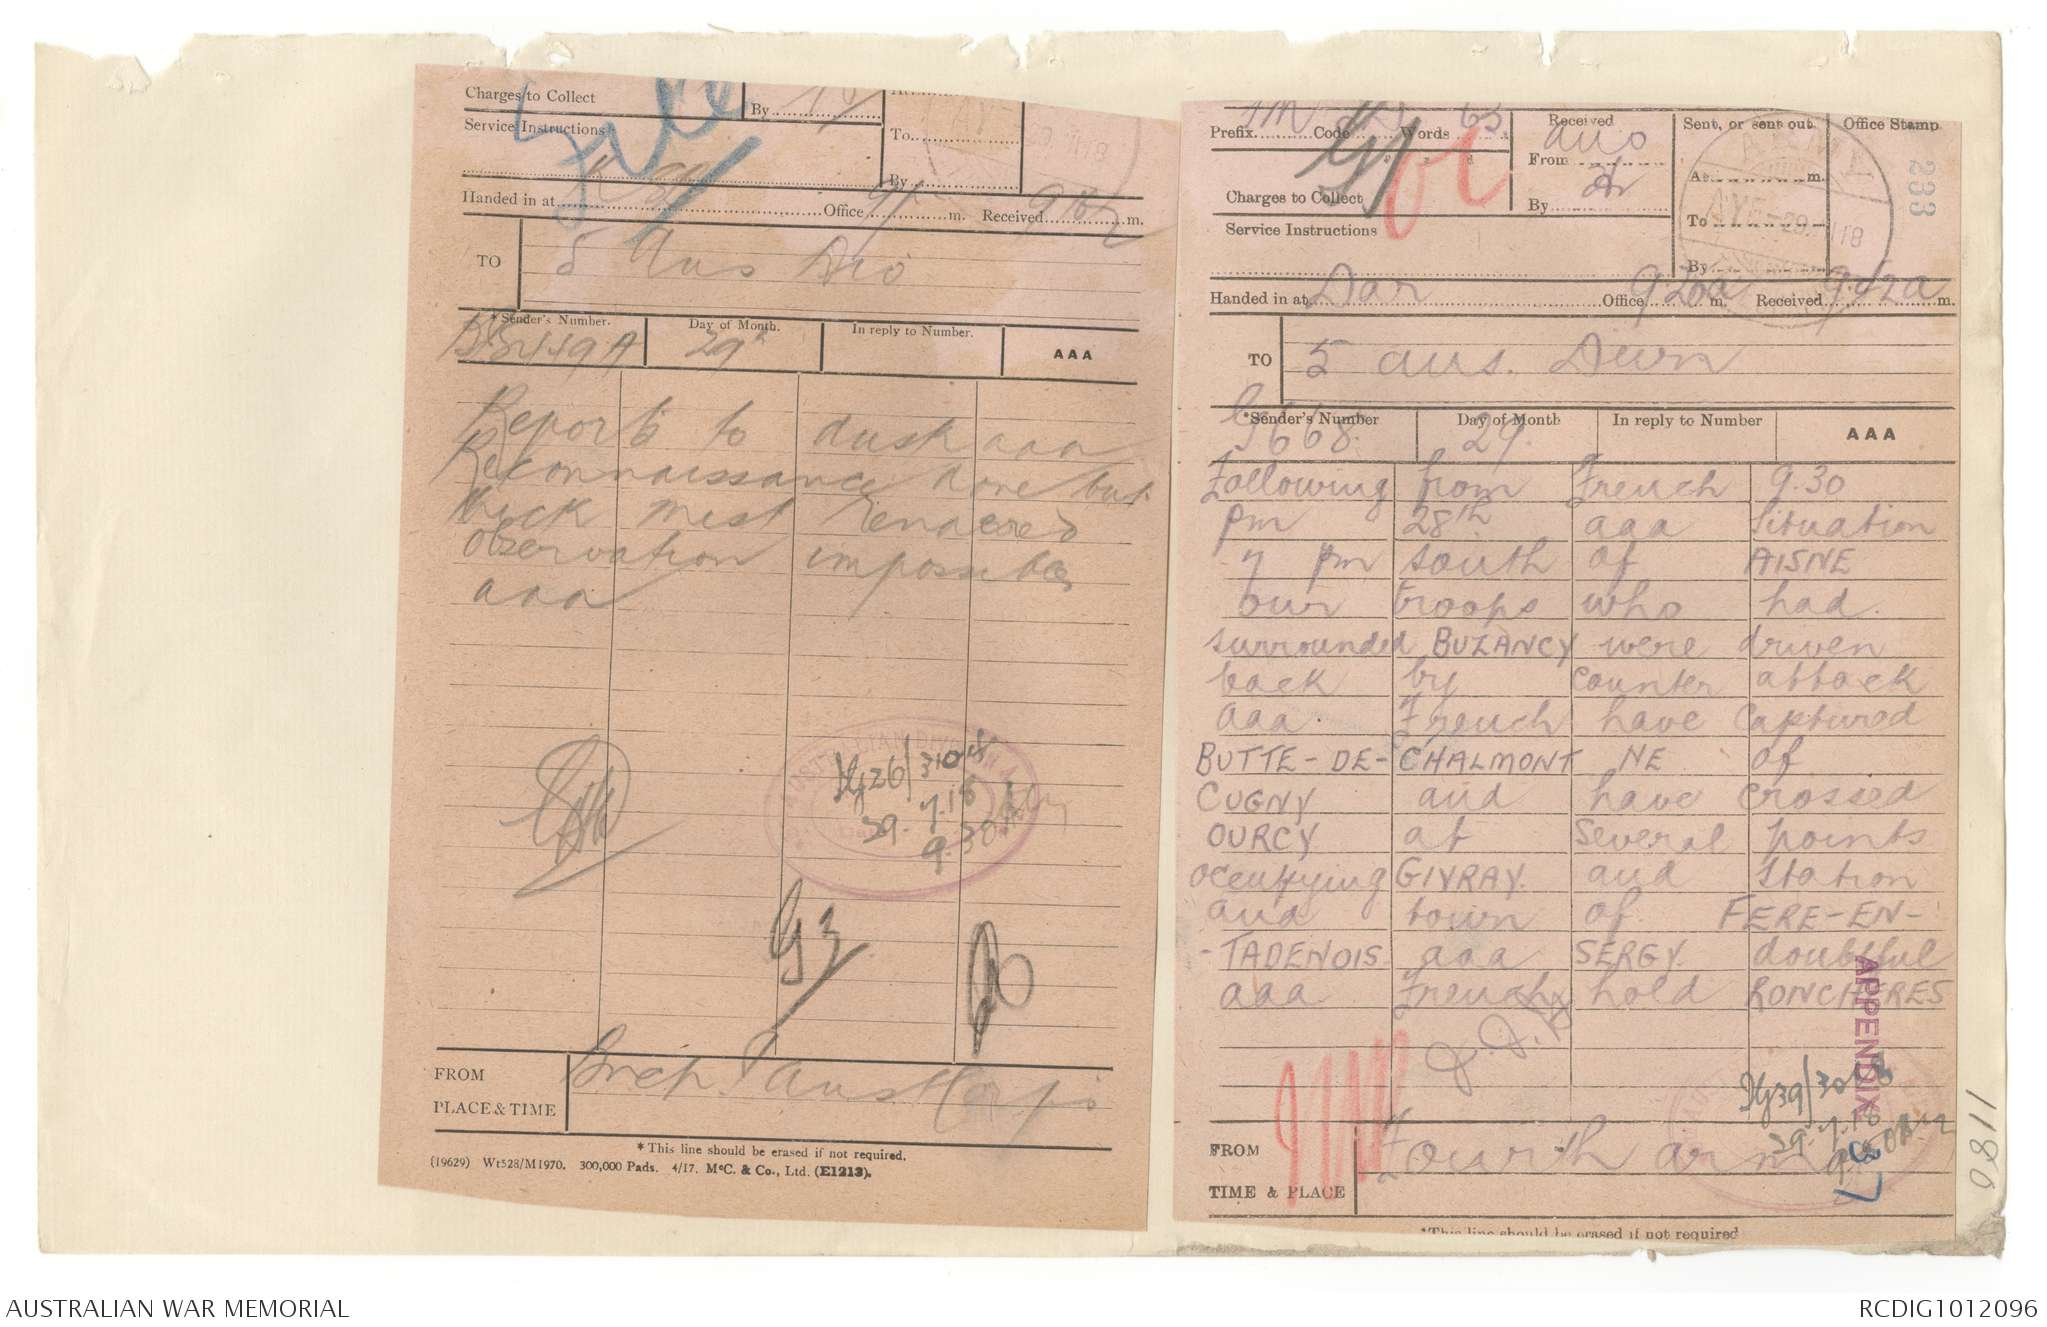 Charges to Collect
By
To
Service Instructions
File
By
Handed in at Office m. Received m.
TO
5 Aus Div
*Sender's Number. Day of Month. In reply to Number. AAA
29th
Report to dusk aaa
Reconnaissance done but
thick mist rendered
observation impossible
aaa
AUSTRALIAN DIVISION
Ig 26/3108
29.7.18
9.30AM
G3
FROM
PLACE & TIME
Aust Corps
*This line should be erased if not required.
(19629) Wt528/M1970. 300,000 Pads. 4/17. McC. & Co., Ltd. (E1213).
Prefix Code Words 63
Received
Sent, or sent out
Office Stamp
From
At m.
Charges to Collect
By
To
Service Instructions
By
233
Handed in at Dar Office 9.20a m. Received 9.42a m.
TO 5 aus. Divn
*Sender's Number Day of Month In reply to Number AAA
G668 29.
Following from French 9.30
pm 28th aaa Situation
7 pm south of AISNE
our troops who had
surrounded BUZANCY were driven
back by counter attack
aaa French have captured
BUTTE-DE-CHALMONT NE of
CUGNY and have crossed
OURCY at several points
occupying GIVRAY and station
and town of FERE-EN-
-TADENOIS aaa SERGY doubtful
aaa French hold RONCHERES
APPENDIX
Ig 39/3048
29.7.18
FROM
TIME & PLACE
Fourth army
*This line should be erased if not required
1186
AUSTRALIAN WAR MEMORIAL
RCDIG1012096